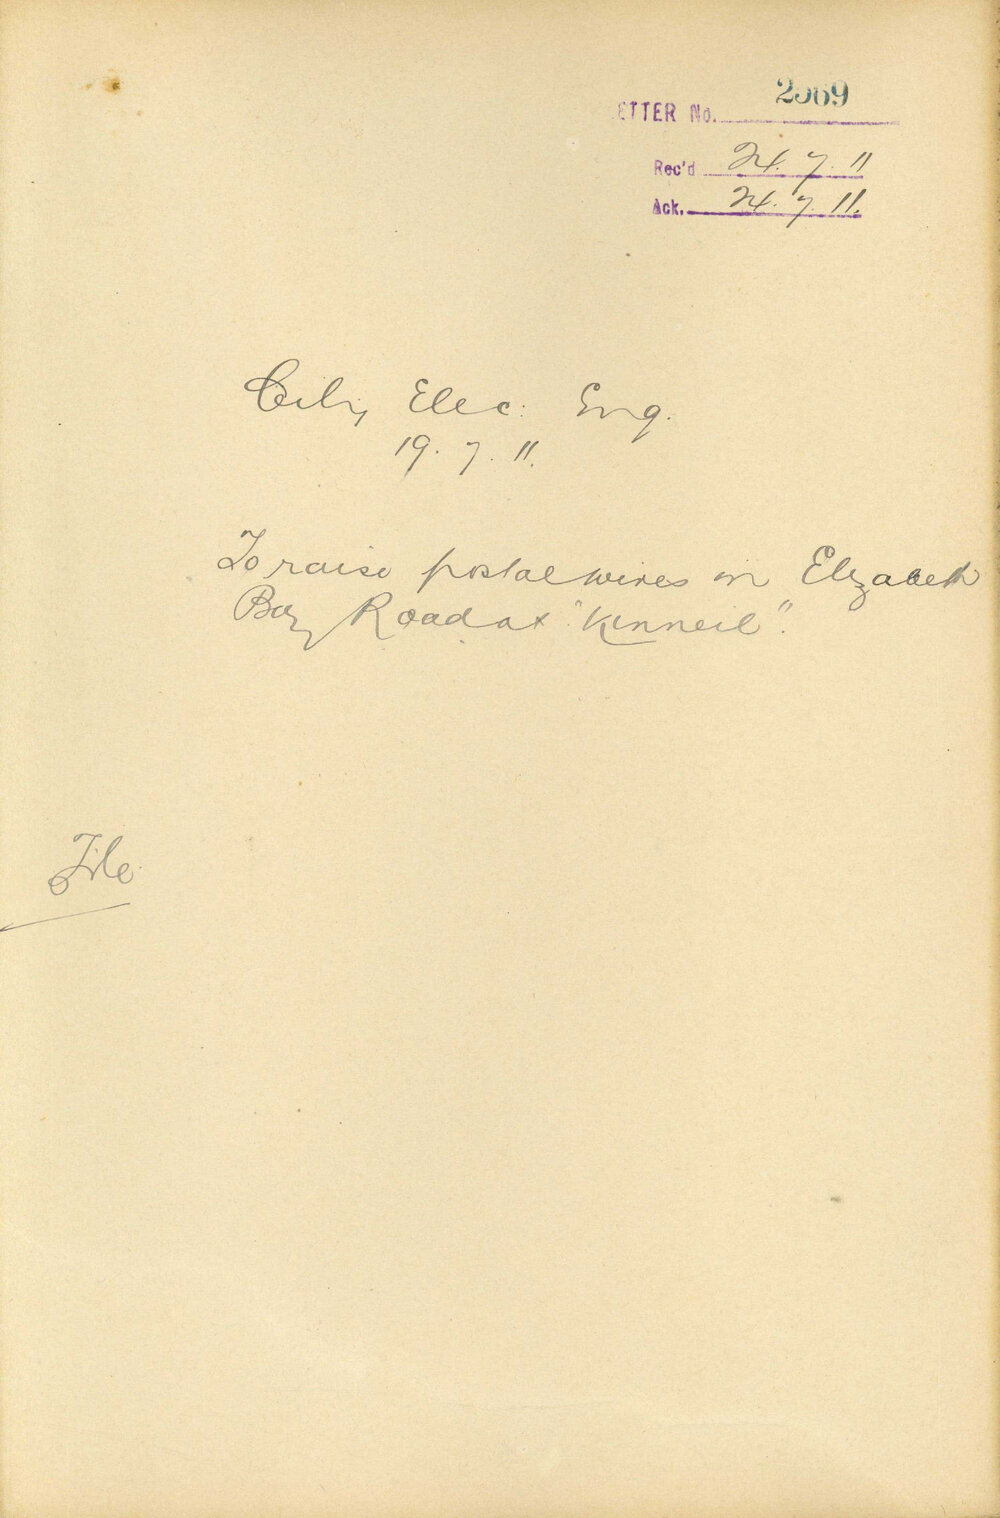 ETTER No. 2569
Rec'd 24. 7. 11
Ack. 24. 7. 11.
City Elec. Eng.
19. 7. 11.
To raise postal wires in Elizabeth
Bay Road at "Kinneil".
File